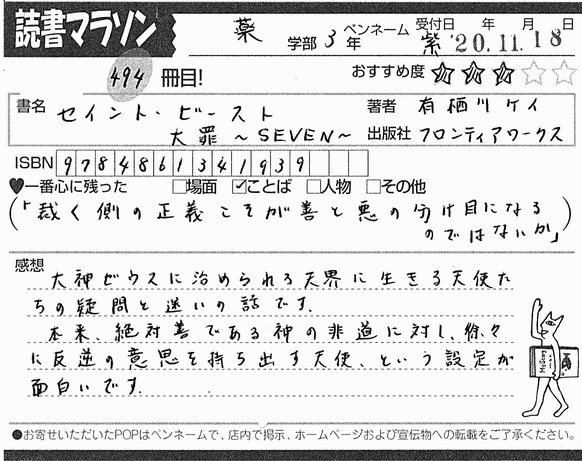 読書マラソン
薬 学部 3年 ペンネーム 紫 受付日 年 月 日 '20.11.18
494 冊目! おすすめ度 ★★★☆☆
書名 セイント・ビースト 著者 有栖川ケイ
大罪 ～SEVEN～ 出版社 フロンティアワークス
ISBN 9784861341939
♥一番心に残った □場面 ☑ことば □人物 □その他
(「裁く側の正義こそが善と悪の分け目になる
のではないか」)
感想
大神ゼウスに治められる天界に生きる天使た
ちの疑問と迷いの話です.
本来、絶対善である神の非道に対し、徐々
に反逆の意思を持ち出す天使、という設定が
面白いです.
●お寄せいただいたPOPはペンネームで、店内で掲示、ホームページおよび宣伝物への転載をご了承ください。